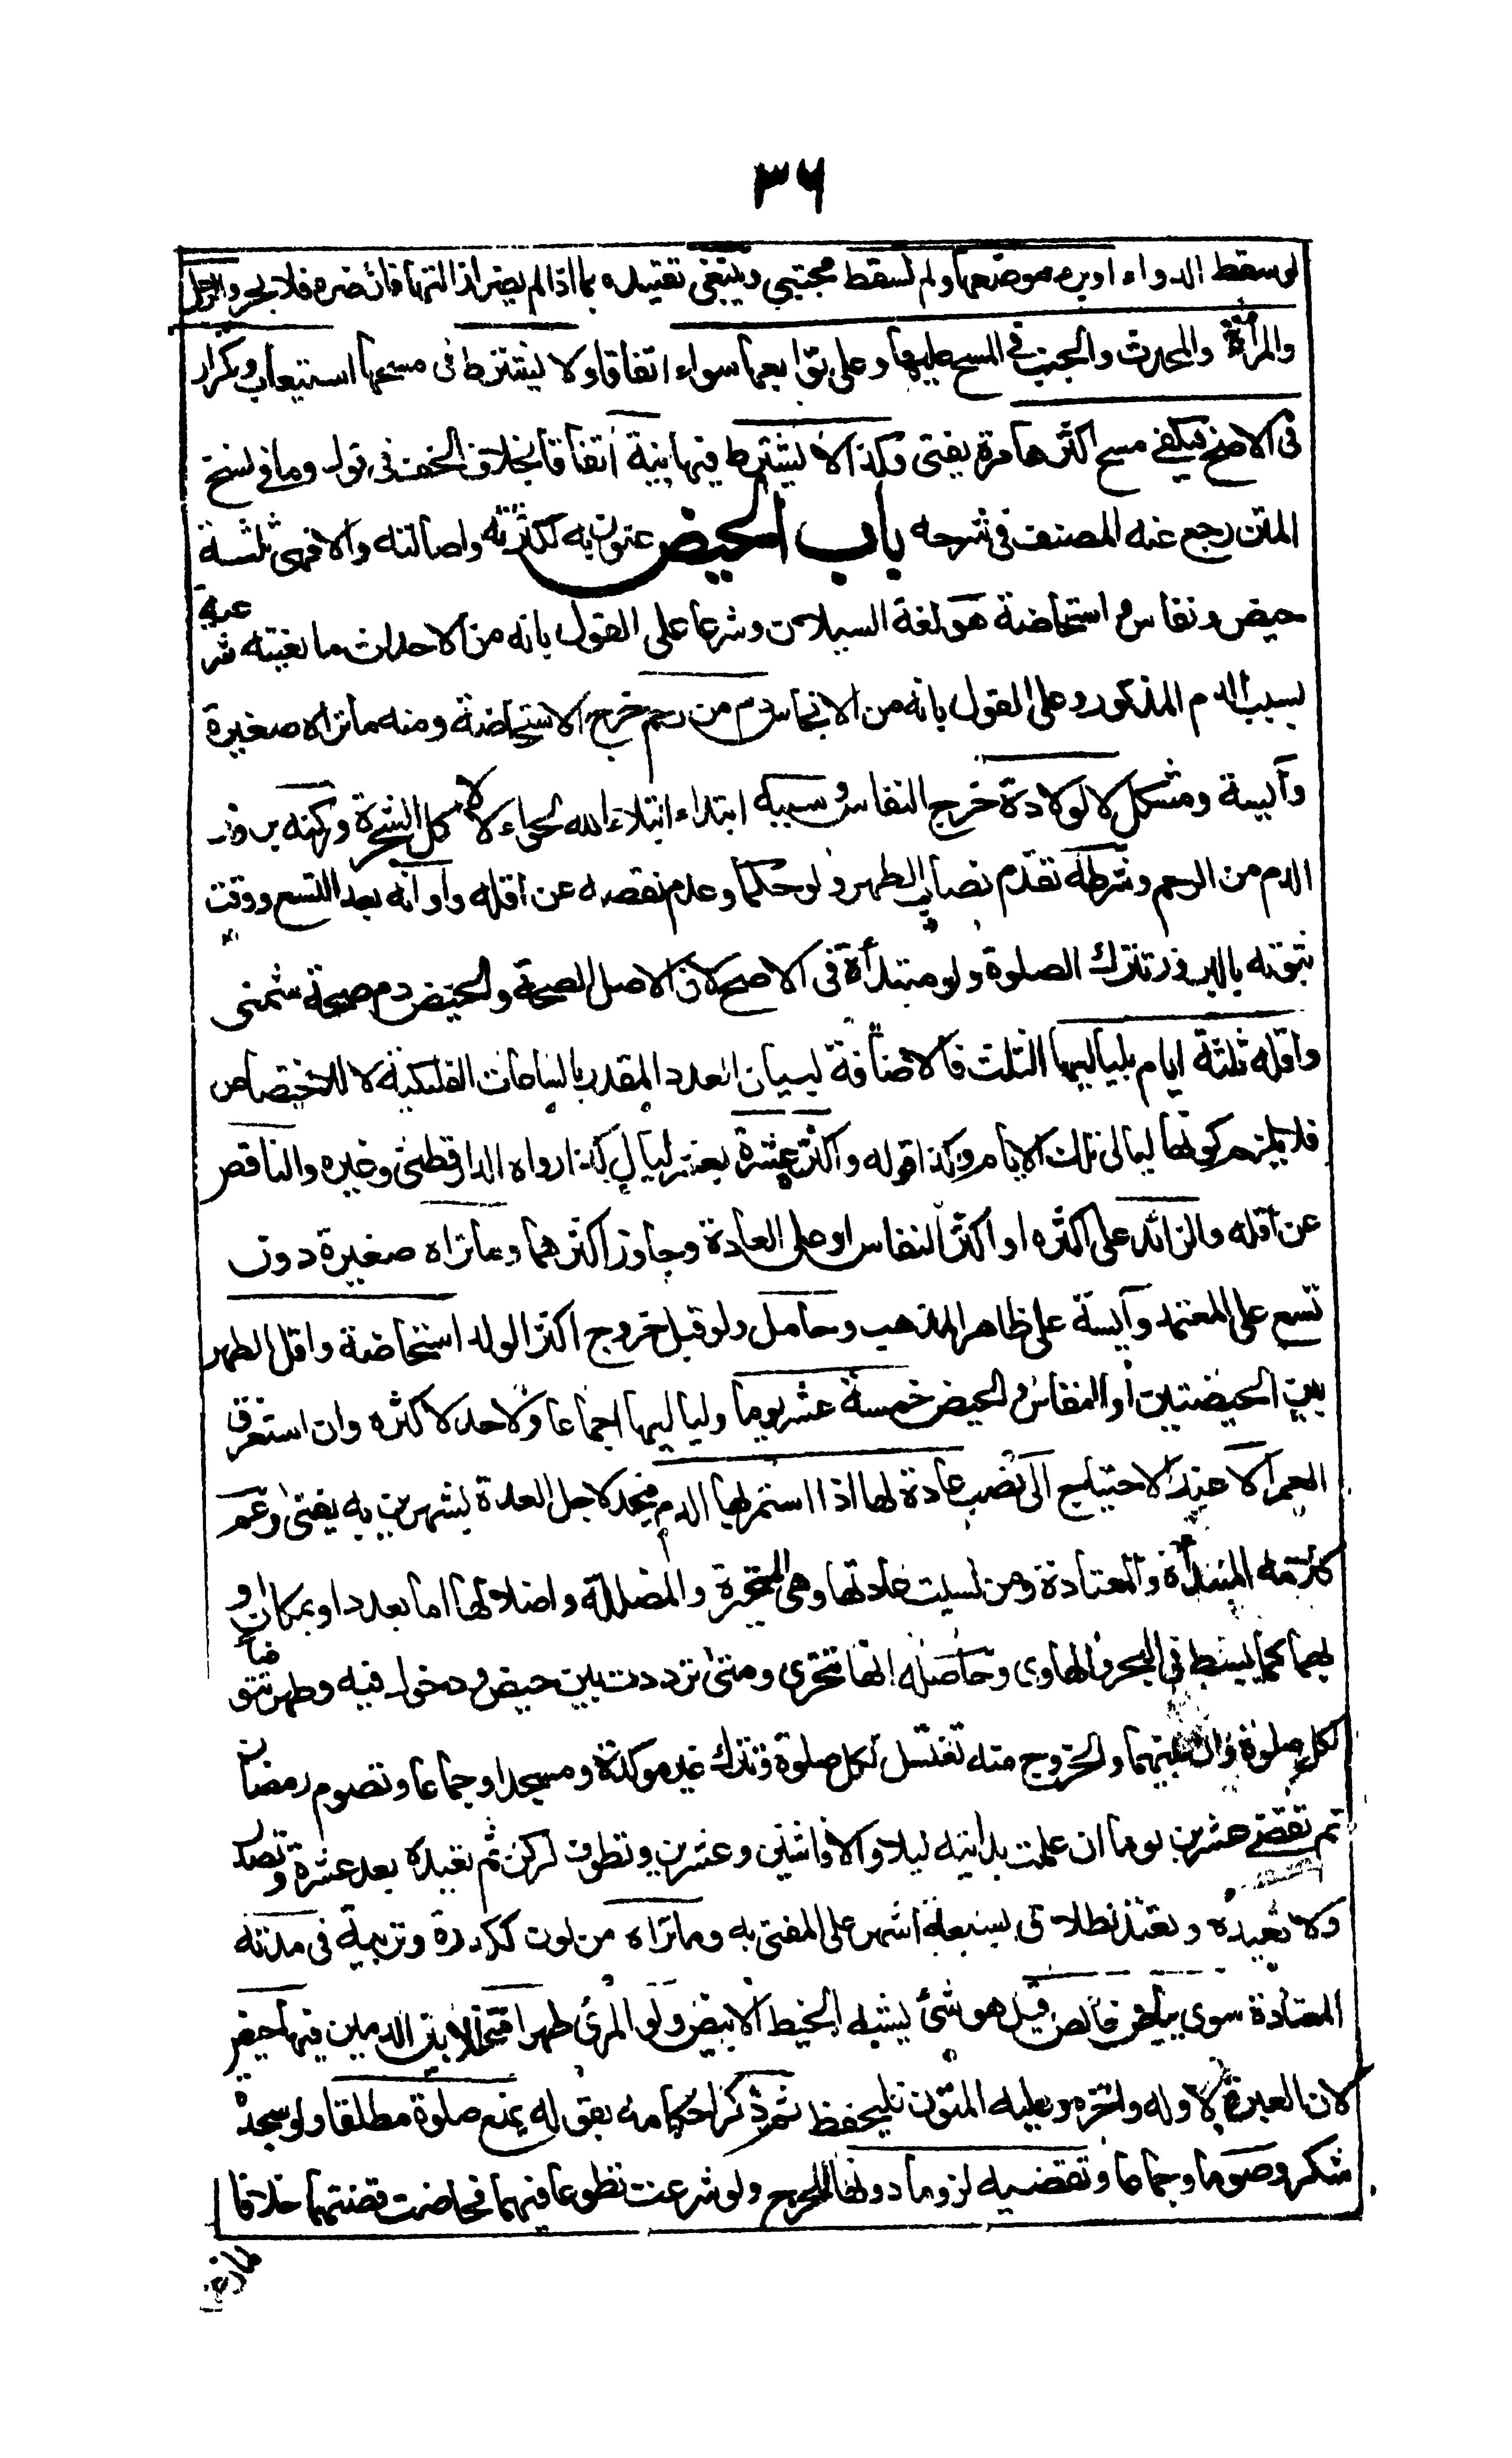 ٣٦
لو سقط الدواء او برء موضعها ولم تسقط مجتبى وينبغى تقييده بما اذا لم يضر ازالتها فان ضره فلا بحر والرجل
والمرأة والمحدث والجنب فى المسح عليها وعلى توابعها سواء اتفاقا ولا يشترط فى مسحها استيعاب وتكرار
فى الاصح فيكفى مسح اكثرها مرة يفتى وكذا لا يشترط فيها نية اتفاقا بخلاف الخف فى قول وما فى نسخ
المتن رجع عنه المصنف فى شرحه باب الحيض عنون به لكثرته واصالته والا فهى ثلثة
حيض ونفاس واستحاضة هو لغة السيلان وشرعا على القول بانه من الاحداث مانعية شرعية
بسبب الدم المذكور وعلى القول بانه من الانجاس دم من رحم خرج الاستحاضة ومنه ما تراه صغيرة
وآيسة ومشكل لا لولادة خرج النفاس وسببه ابتداء ابتلاء الله لحواء لاكل الشجرة وركنه بروز
الدم من الرحم وشرطه تقدم نصاب الطهر ولو حكما وعدم نقصه عن اقله وأوانه بعد التسع ووقت
ثبوته بالبروز تترك الصلوة ولو مبتدأة فى الاصح لان الاصل الصحة والحيض دم صحة شمنى
واقله ثلثة ايام بلياليها الثلث فالاضافة لبيان العدد المقدر بالساعات الفلكية لا للاختصاص
فلا يلزم كونها ليالى تلك الايام وكذا قوله واكثره عشرة بعشر ليال كذا رواه الدارقطنى وغيره والناقص
عن اقله والزائد على اكثره او اكثر النفاس او على العادة وجاوز اكثرهما وما تراه صغيرة دون
تسع على المعتمد وآيسة على ظاهر المذهب وحامل ولو قبل خروج اكثر الولد استحاضة واقل الطهر
بين الحيضتين او النفاس والحيض خمسة عشر يوما ولياليها اجماعا ولا حد لاكثره وان استغرق
العمر الا عند الاحتياج الى نصب عادة لها اذا استمر لها الدم فيحد لاجل العدة بشهرين به يفتى وعم
كلامه المبتدأة والمعتادة ومن نسيت عادتها وهى المحيرة والمضللة واضلالها اما بعدد او بمكان او
بهما كما بسط فى البحر والحاوى وحاصله انها تتحرى ومتى ترددت بين حيض ودخول فيه وطهر تتوضأ
لكل صلوة وان بينهما والخروج منه تغتسل لكل صلوة وتترك غير موكدة ومسجدا وجماعا وتصوم رمضان
ثم تقضى عشرين يوما ان علمت بدايته ليلا والا فاثنين وعشرين وتطوف لركن ثم تعيده بعد عشرة ولصدر
ولا تعيده وتعتد لطلاق بسبعة اشهر على المفتى به وما تراه من لون ككدرة وتربية فى مدته
المعتادة سوى بياض خالص قيل هو شئ يشبه الخيط الابيض ولو المرئى طهرا متخللا بين الدمين فيها حيض
لان العبرة لاوله واخره وعليه المتون فليحفظ ثم ذكر احكامه بقوله يمنع صلوة مطلقا ولو سجدة
شكر وصوما وجماعا وتقضيه لزوما دونها للحرج ولو شرعت تطوعا فيهما فحاضت قضتهما خلافا